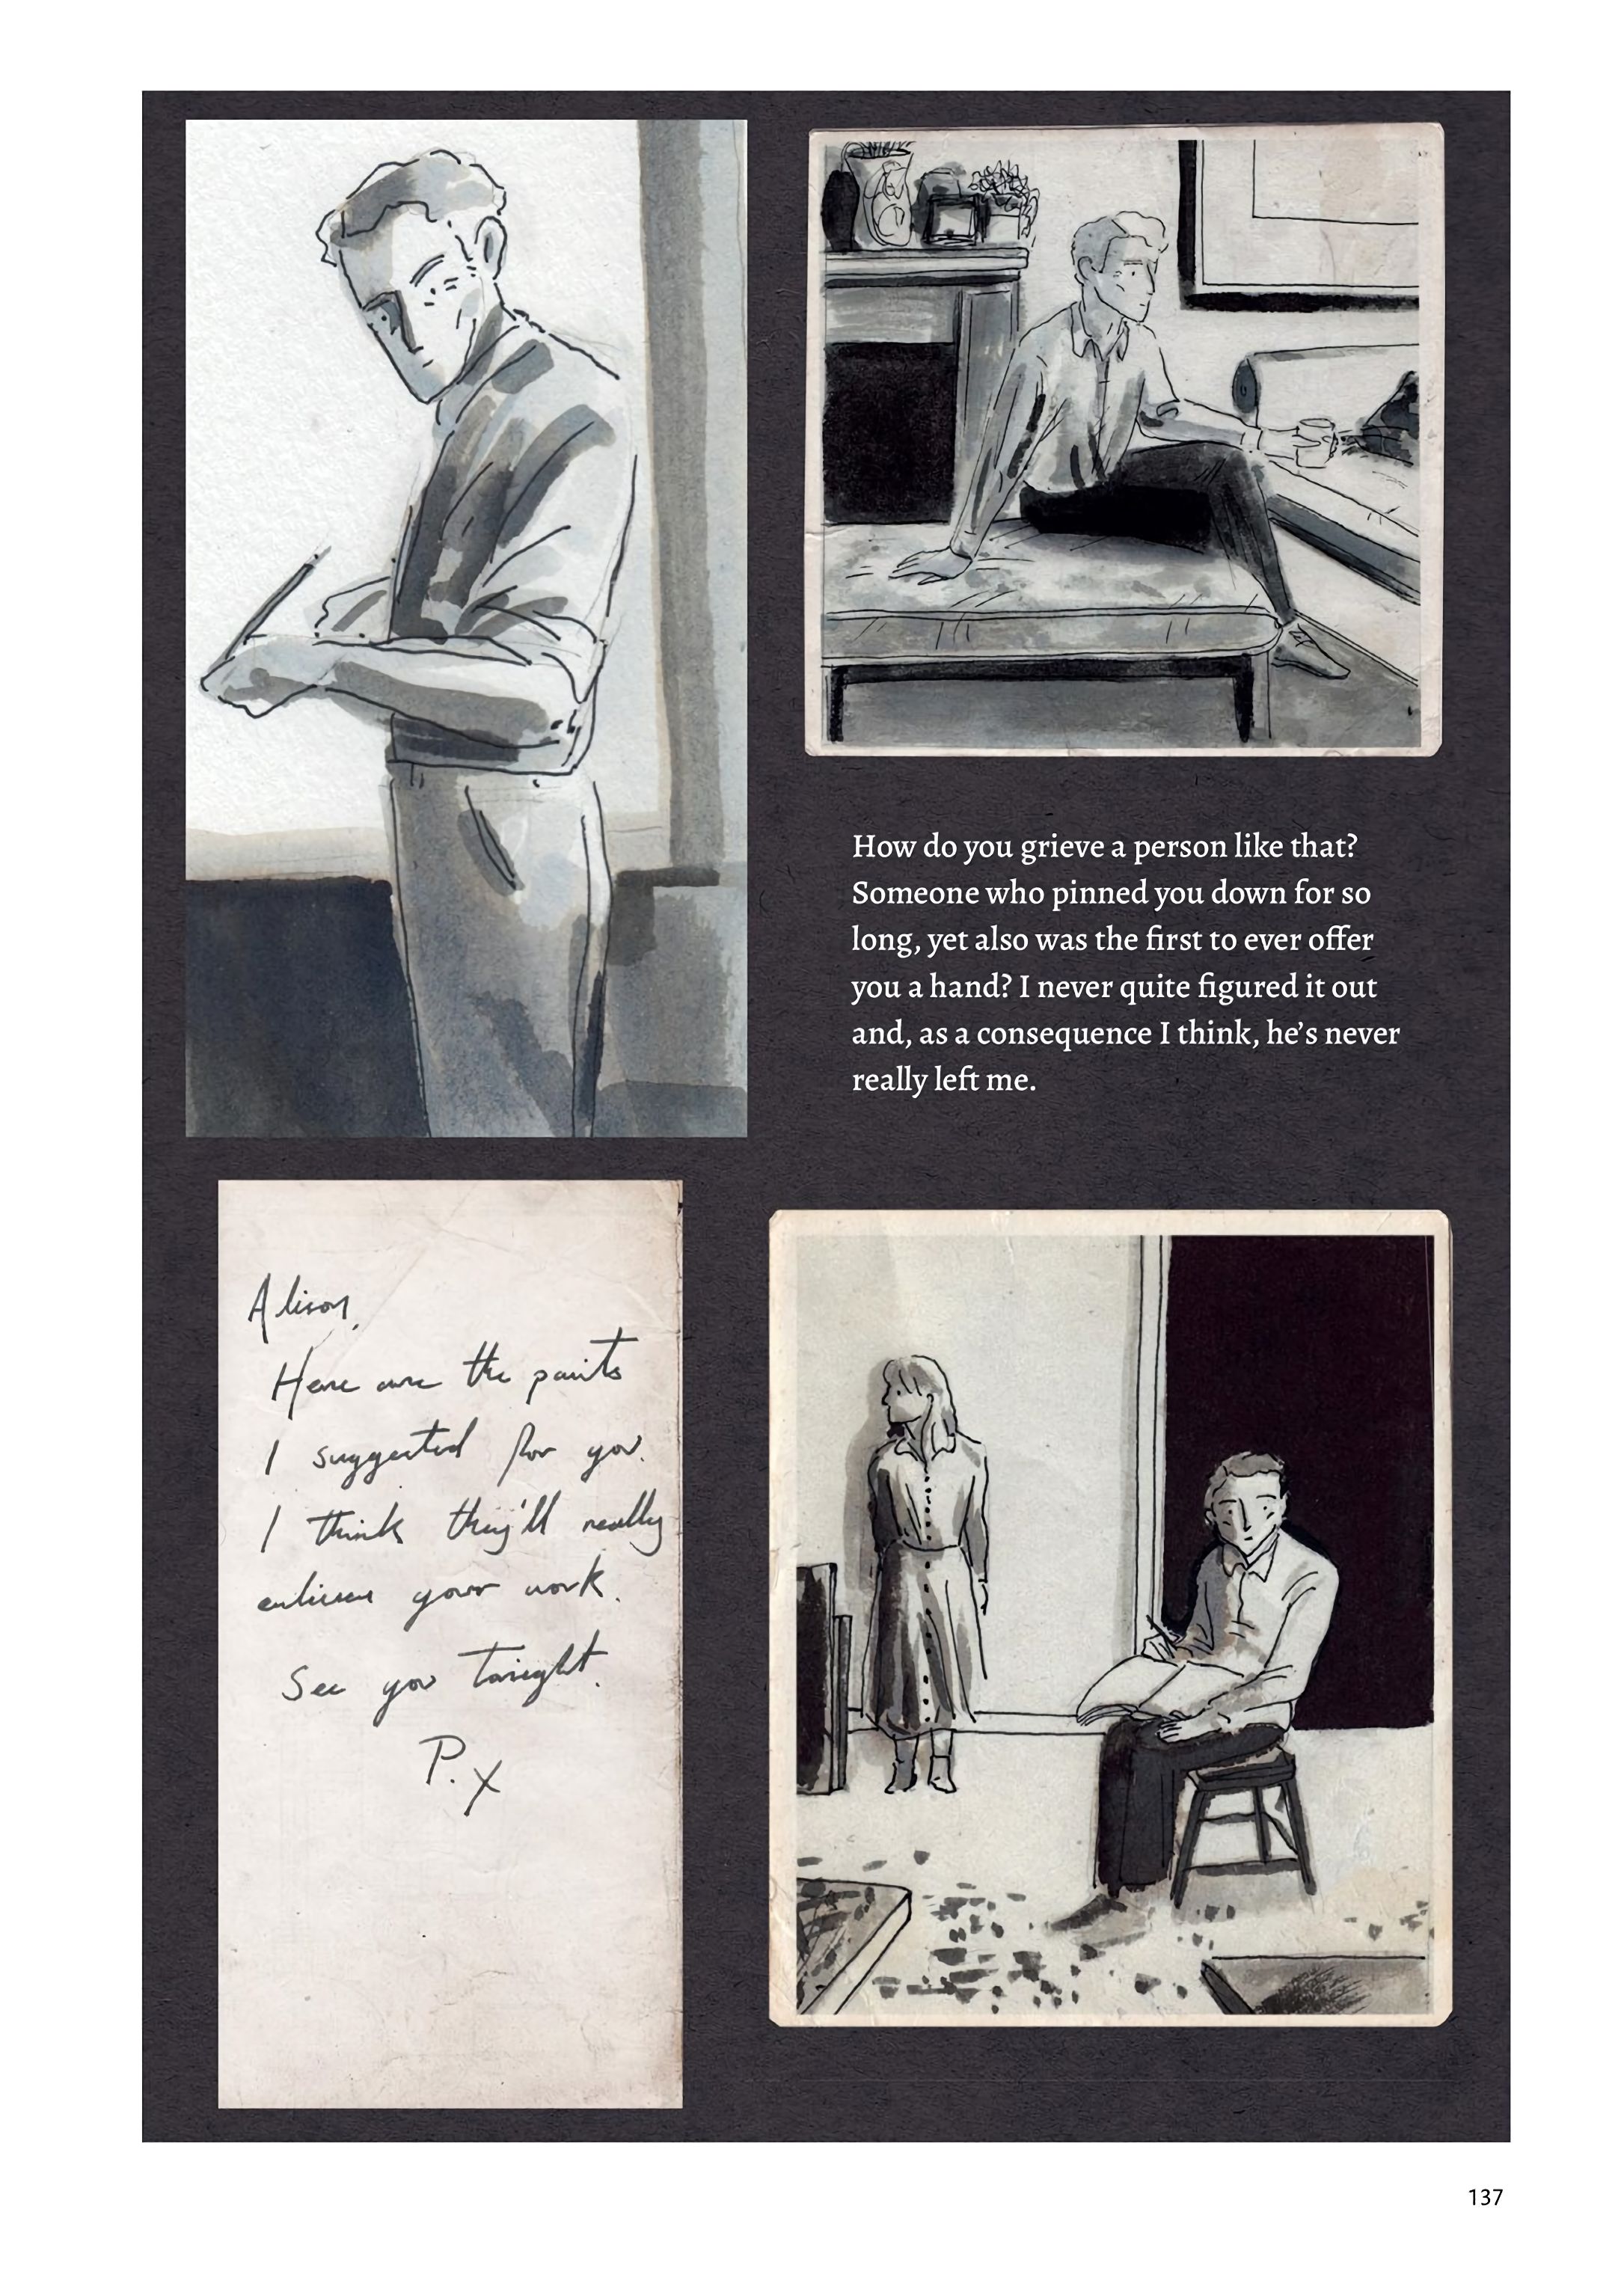 How do you grieve a person like that?
Someone who pinned you down for so
long, yet also was the first to ever offer
you a hand? I never quite figured it out
and, as a consequence I think, he's never
really left me.
Alison,
Here are the paints
I suggested for you.
I think they'll really
enliven your work.
See you tonight.
P. x
137